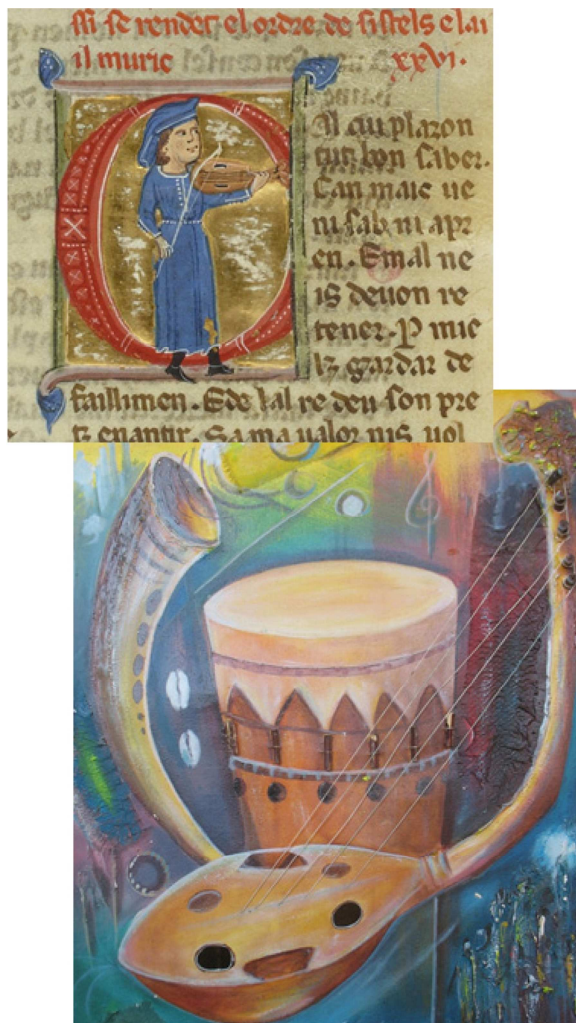 ssi se rendet el ordre de sistels e lai
il muric xxvi.
cui plazon
tut bon saber.
Can maic ue
ni sab ni apr
en. E mal ne
is deuon re
tener. P mie
lz gardar de
faillimen. E de lal re deu son pre
tz enantir. Sa ma ualor nis uol